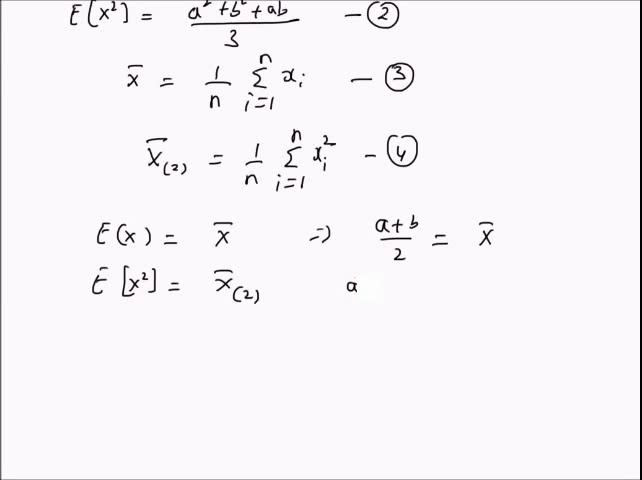 E[x²] = a² + b² + ab / 3 — ②
x̄ = 1/n Σ_{i=1}^{n} xᵢ — ③
x̄₍₂₎ = 1/n Σ_{i=1}^{n} xᵢ² — ④
E(x) = x̄ ⇒ a+b / 2 = x̄
E[x²] = x̄₍₂₎ a